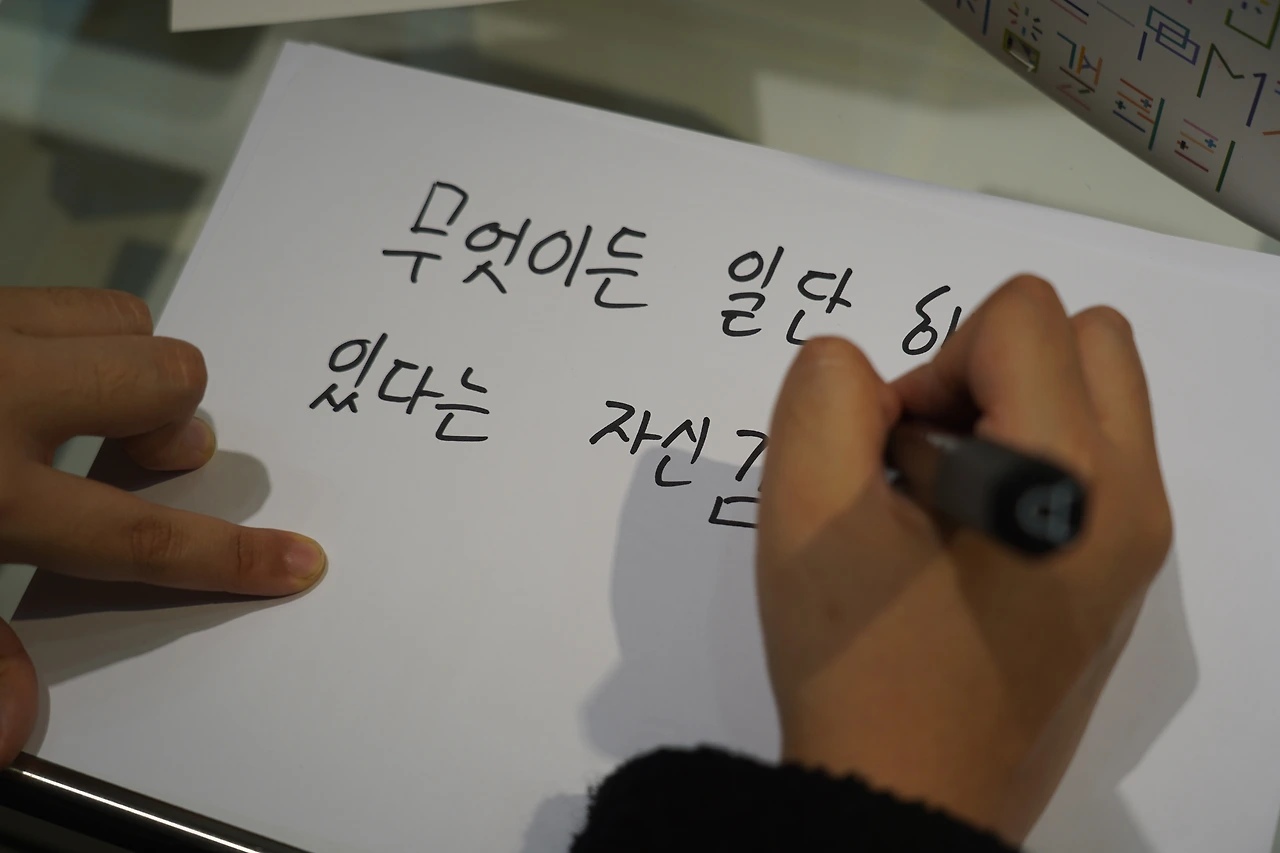 무엇이든 일단
있다는 자신